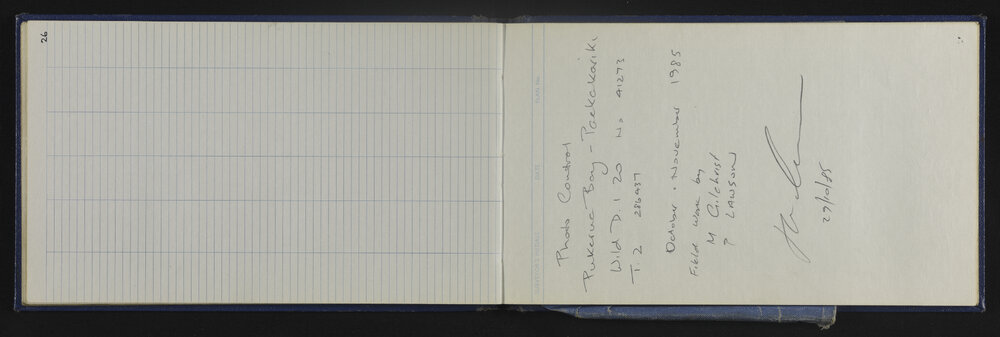 26
Photo Control
Pukerua Bay - Paekakariki
Wild D.I 20 No 41273
T. 2 286937
October . November 1985
Field work by
M Gilchrist
P LAWSON
29/10/85